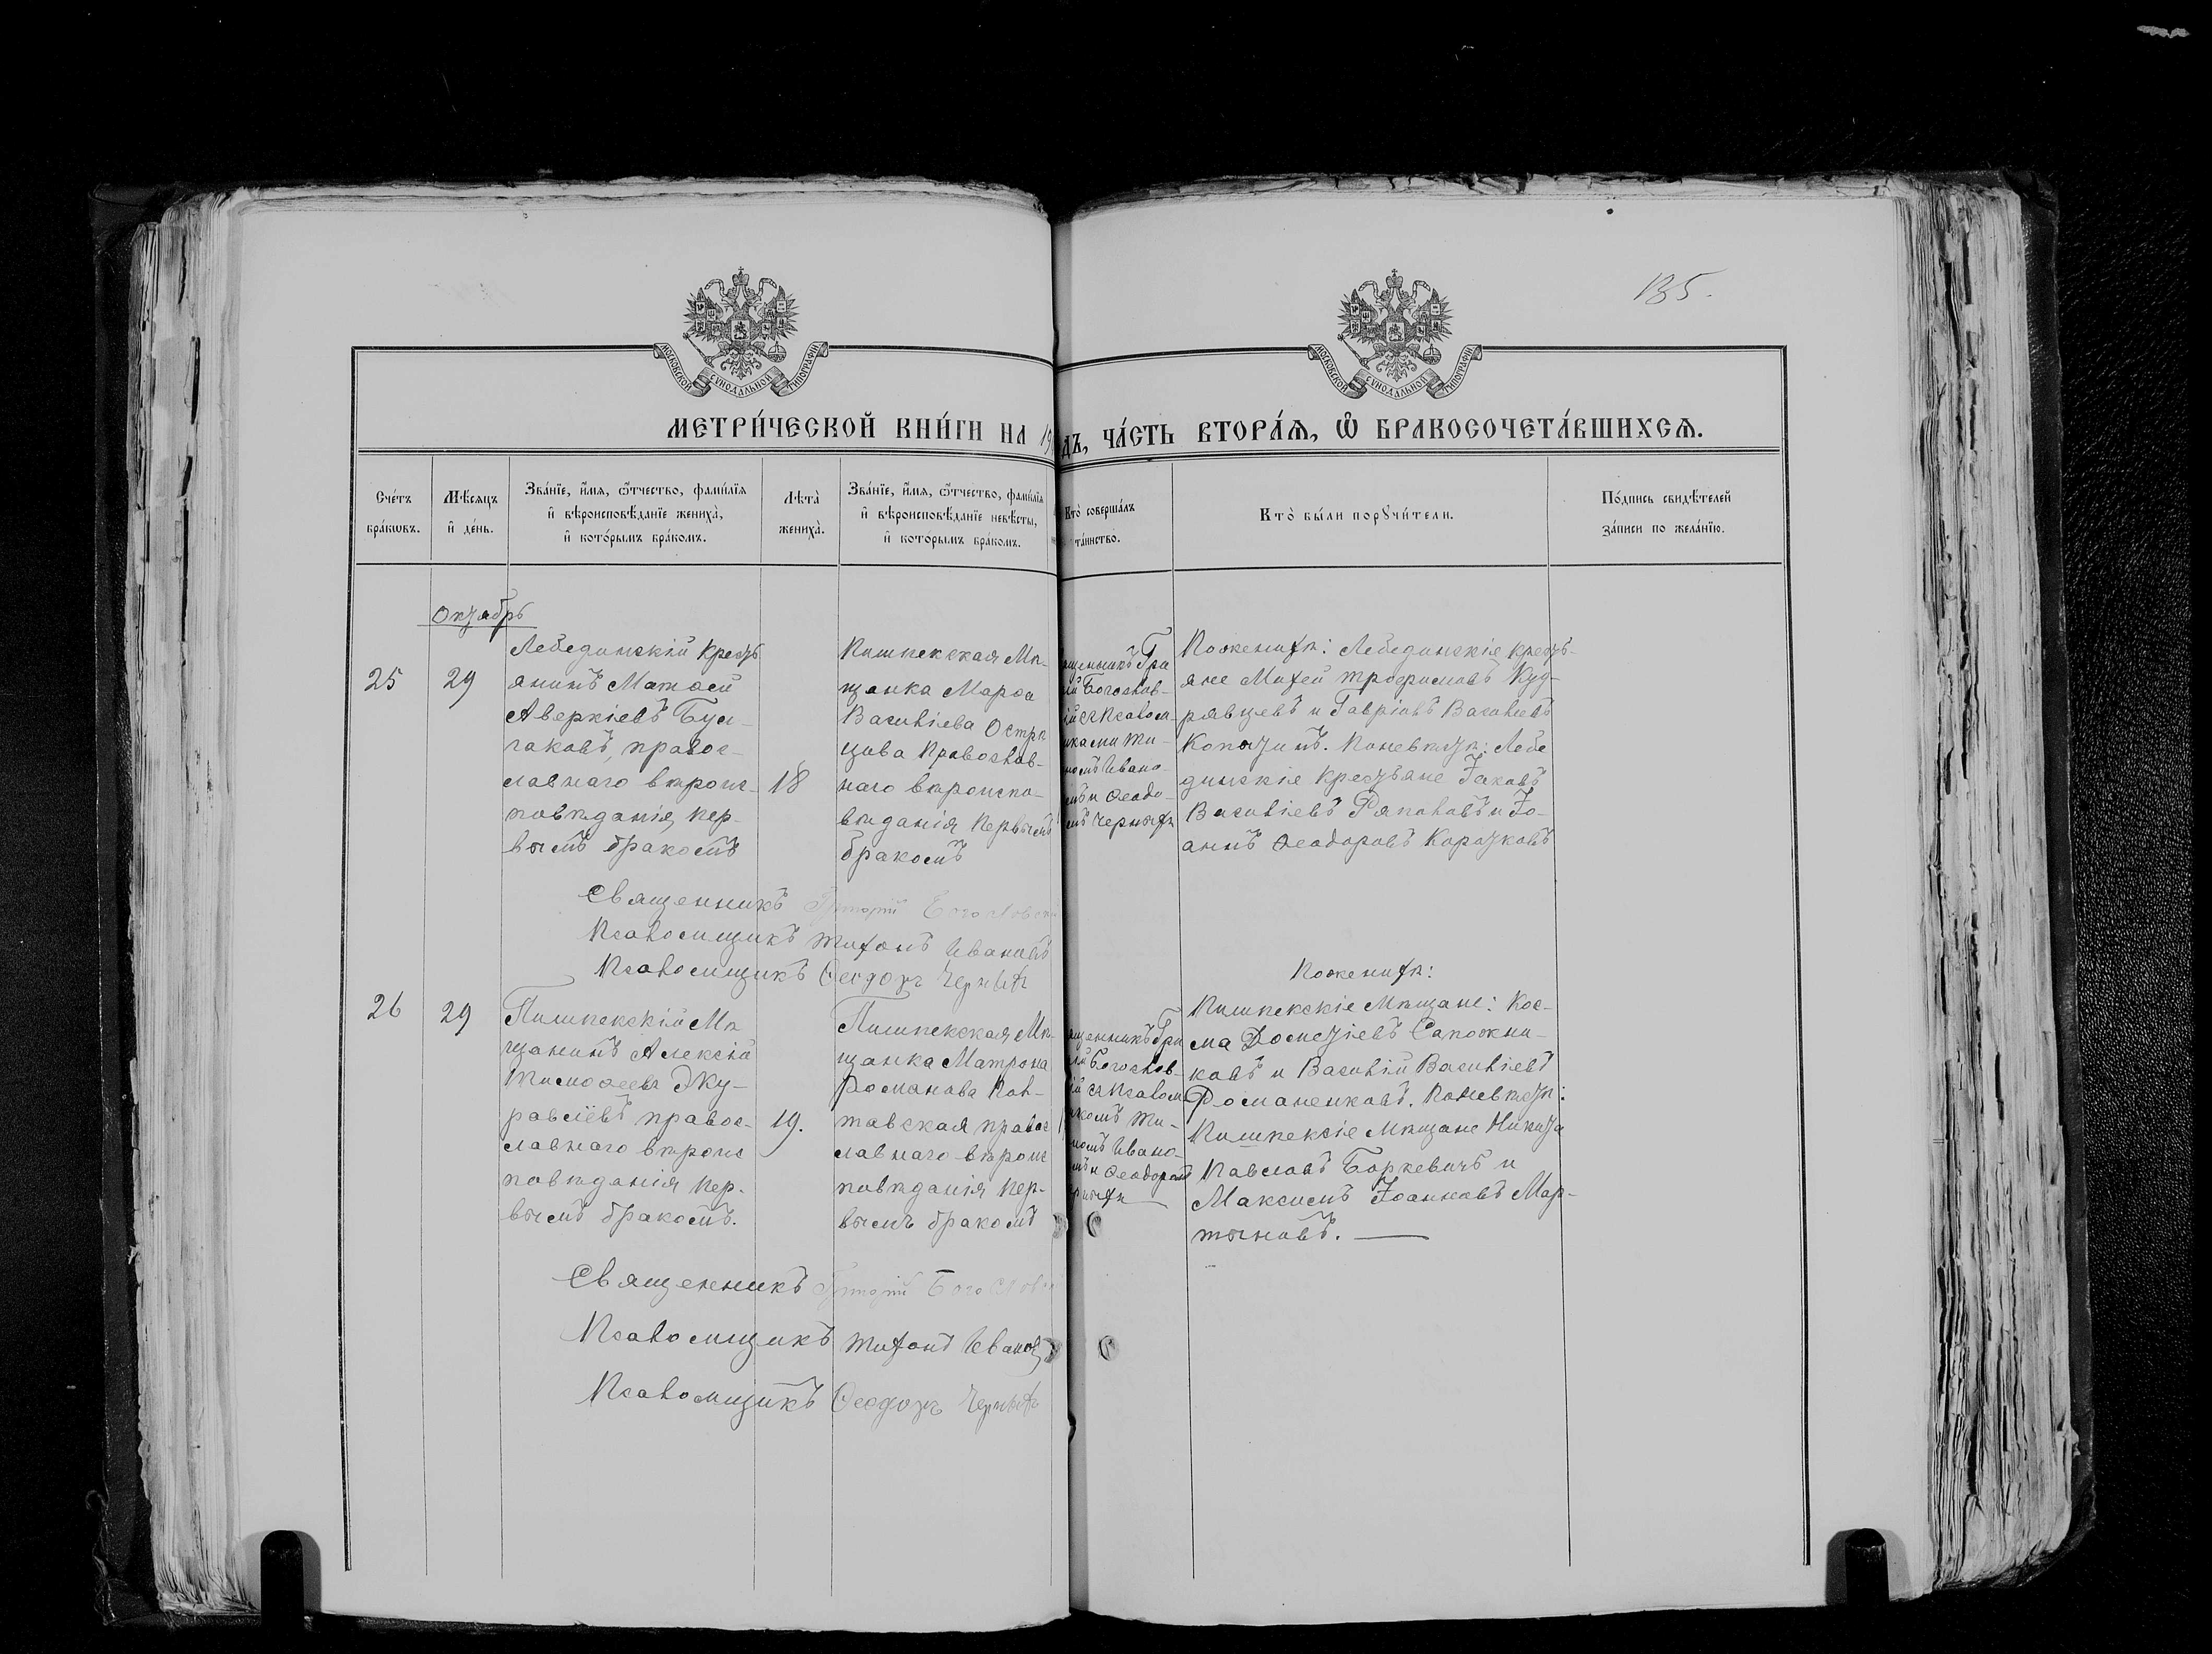 135.
МОСКОВСКОЙ СѴНОДАЛЬНОЙ ТИПОГРАФІИ
МОСКОВСКОЙ СѴНОДАЛЬНОЙ ТИПОГРАФІИ
МЕТРИ́ЧЕСКОЙ КНИ́ГИ НА 19
ДЪ, ЧА́СТЬ ВТОРА́Ѧ, Ѽ БРАКОСОЧЕТА́ВШИХСѦ.
Сче́тъ
бра́кѡвъ.
Мѣ́сѧцъ
и҆ де́нь.
Зва́нїе, и҆́мѧ, ѻ҆́тчество, фамѝлїѧ
и҆ вѣроисповѣ́данїе жениха̀,
и҆ кото́рымъ бра́комъ.
Лѣта̀
жениха̀.
Зва́нїе, и҆́мѧ, ѻ҆́тчество, фамѝлїѧ
и҆ вѣроисповѣ́данїе невѣ́сты,
и҆ кото́рымъ бра́комъ.
Кто̀ соверша́лъ
та́инство.
Кто̀ бы́ли порꙋчи́тели.
По́дпись свидѣ́телей
за́писи по жела́нїю.
Октябрь
25
29
Лебединскій Кресть
янинъ Матѳей
Аверкіевъ Бул-
гаковъ, правос-
лавнаго вѣроис-
повѣданія, пер-
вымъ бракомъ
18
Пишпекская Мѣ-
щанка Марѳа
Василіева Остри
цова Православ-
наго вѣроиспо-
вѣданія Первымъ
бракомъ
щенникъ Гри
ій Богослов-
ій съ Псалом-
иками Ти-
номъ Ивано-
мъ и Ѳеодо-
мъ Черныхъ
По женихѣ: Лебединскіе кресть-
яне Михей Трофимовъ Куд-
рявцевъ и Гавріилъ Василіевъ
Копытинъ. По невѣстѣ: Лебе
динскіе Крестьяне Іаковъ
Василіевъ Ряполовъ и Іо-
аннъ Ѳеодоровъ Коротковъ
Священникъ Григорій Богословск
Псаломщикъ Тихонъ Ивановъ
Псаломщикъ Ѳеодоръ Черныхъ
26
29
Пишпекскій Мѣ
щанинъ Алексій
Тимоѳеевъ Жу-
равлёвъ правос-
лавнаго вѣроис
повѣданія пер-
вымъ бракомъ.
19.
Пишпекская Мѣ-
щанка Матрона
Романова Пол-
тавская правос
лавнаго вѣроис
повѣданія пер-
вымъ бракомъ
щенникъ Гри
ій Богослов-
ій съ Псалом
икомъ Ти-
номъ Ивано-
мъ и Ѳеодоромъ
рныхъ
По женихѣ:
Пишпекскіе Мѣщане: Кос-
ма Дометіевъ Сапожни-
ковъ и Василій Василіевъ
Романенковъ. По невѣстѣ:
Пишпексіе Мѣщане Никита
Павловъ Боркевичъ и
Максимъ Іоанновъ Мар-
тыновъ.
Священникъ Григорій Богослов
Псаломщикъ Тихонъ Ивановъ
Псаломщикъ Ѳеодоръ Черныхъ